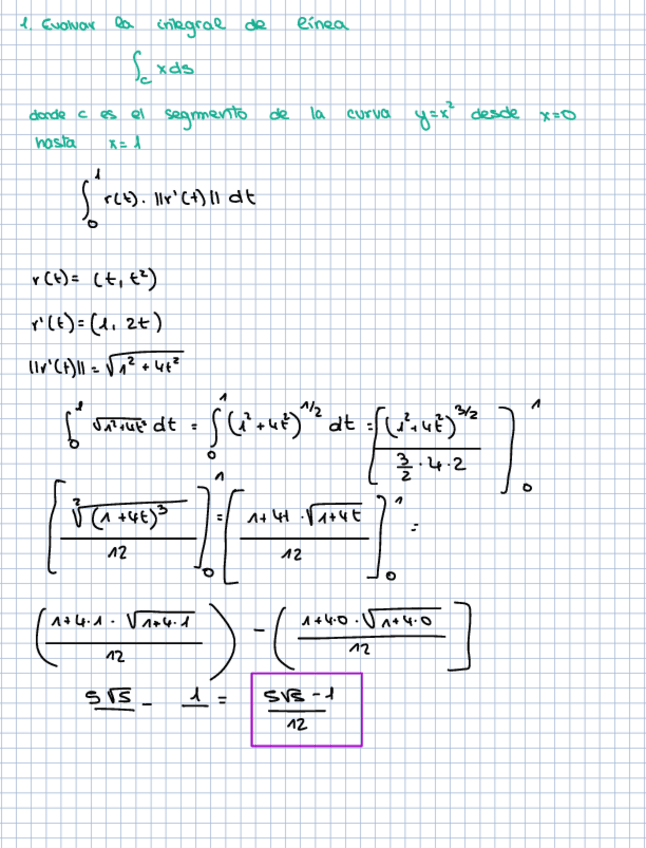 1. Evaluar la integral de línea
∫_c x ds
donde c es el segmento de la curva y=x² desde x=0
hasta x=1
∫₀¹ r(t) · ||r'(t)|| dt
r(t) = (t, t²)
r'(t) = (1, 2t)
||r'(t)|| = √(1² + 4t²)
∫₀¹ √(1²+4t²) dt = ∫₀¹ (1²+4t²)^(1/2) dt = [(1²+4t²)^(3/2) / (3/2 · 4 · 2)]₀¹
[²√((1+4t)³) / 12]₀¹ = [1+4t · √(1+4t) / 12]₀¹ =
(1+4·1 · √(1+4·1) / 12) - (1+4·0 · √(1+4·0) / 12]
5√5 - 1 = (5√5 - 1) / 12